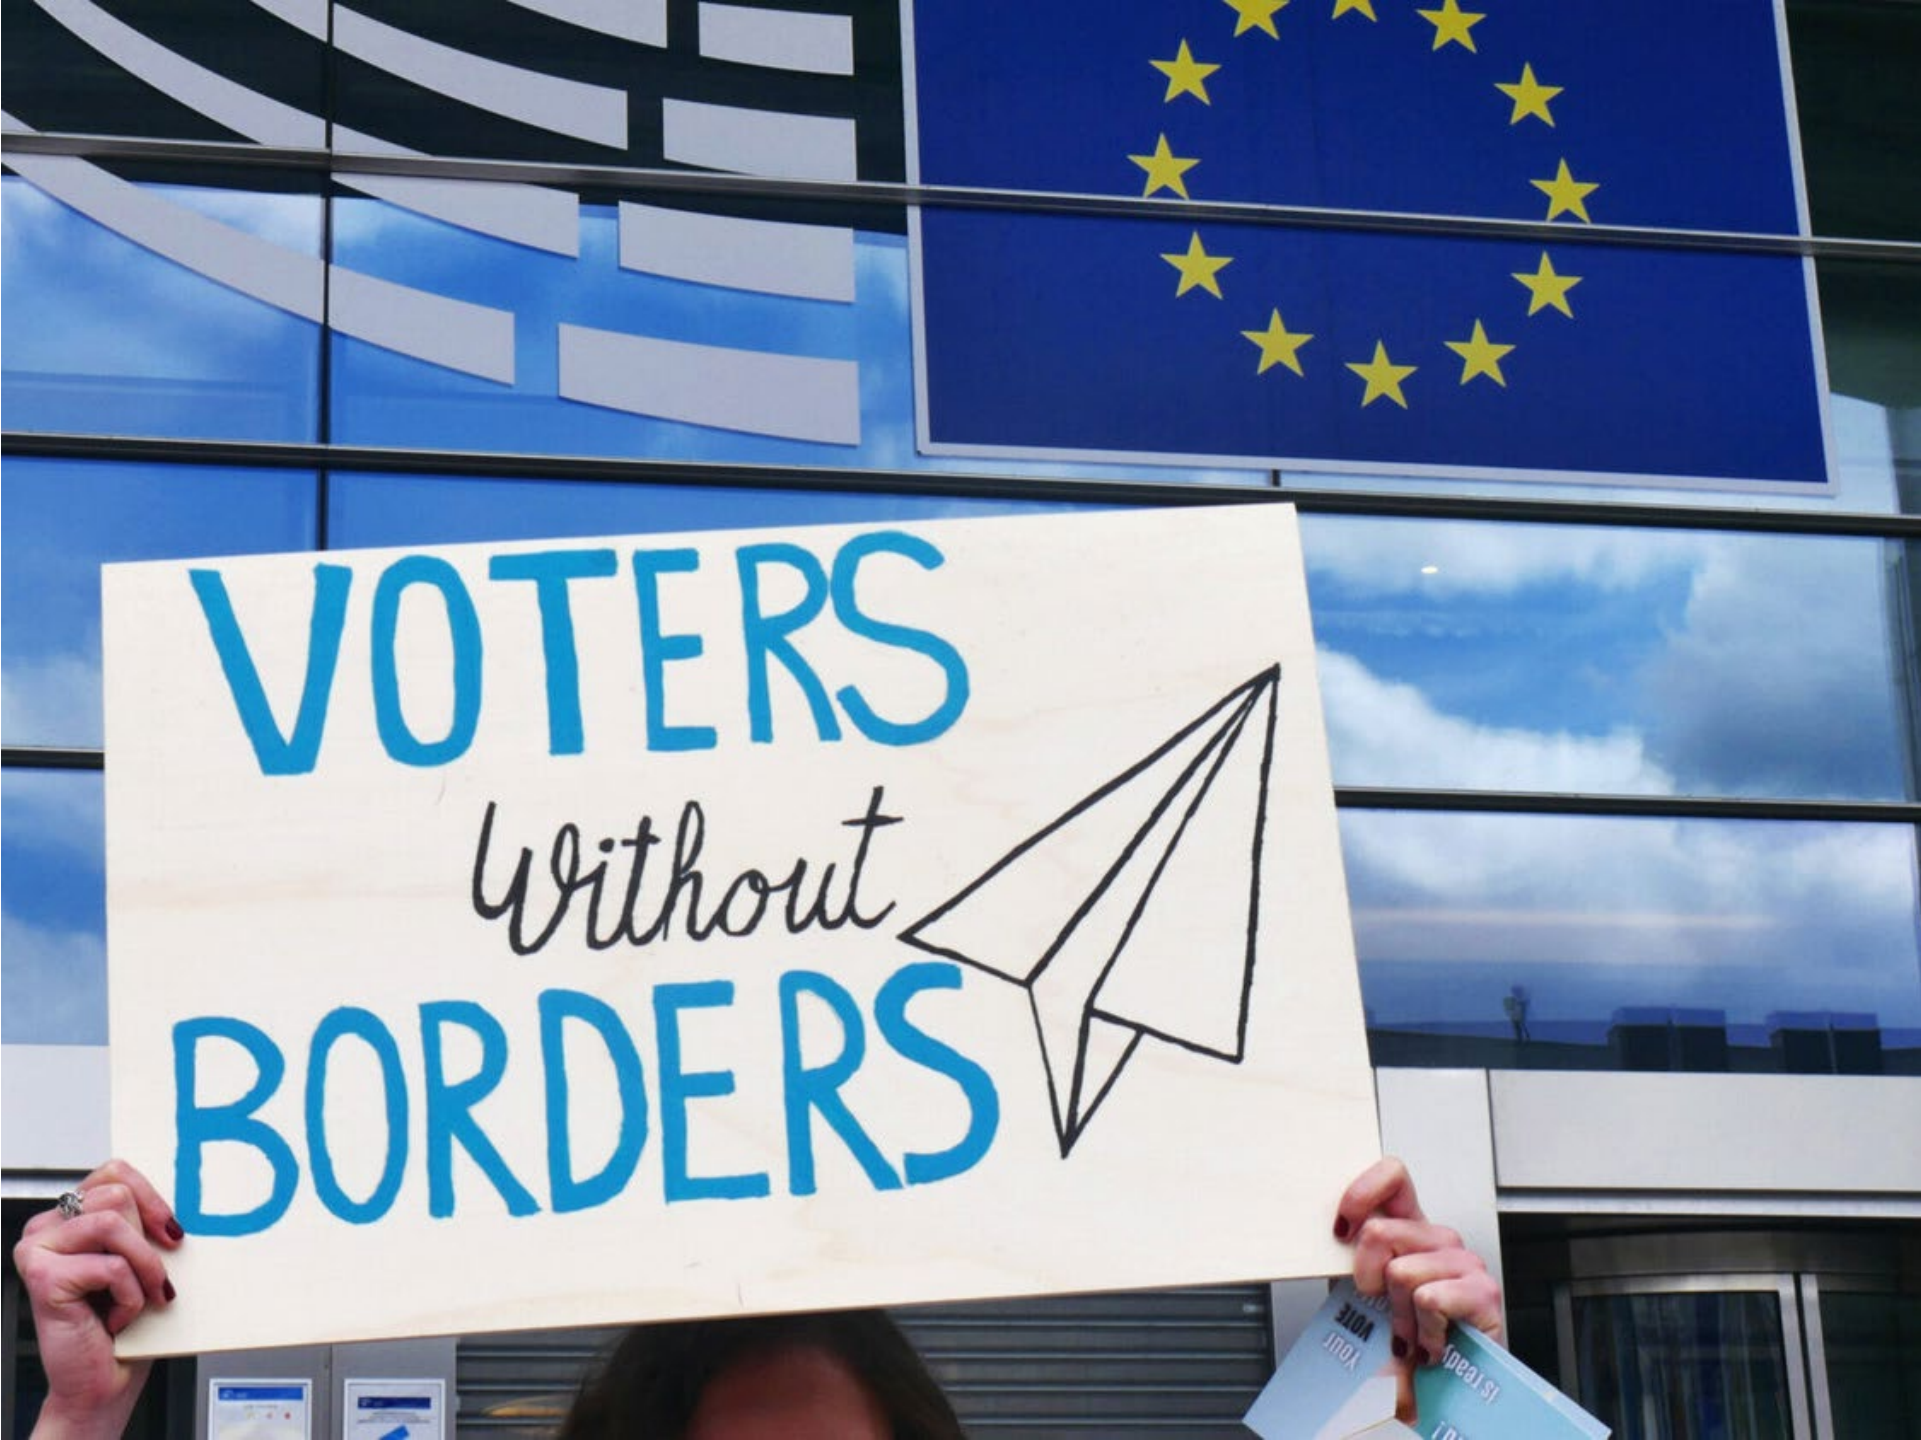 VOTERS
without
BORDERS
Your
VOTE
is ready